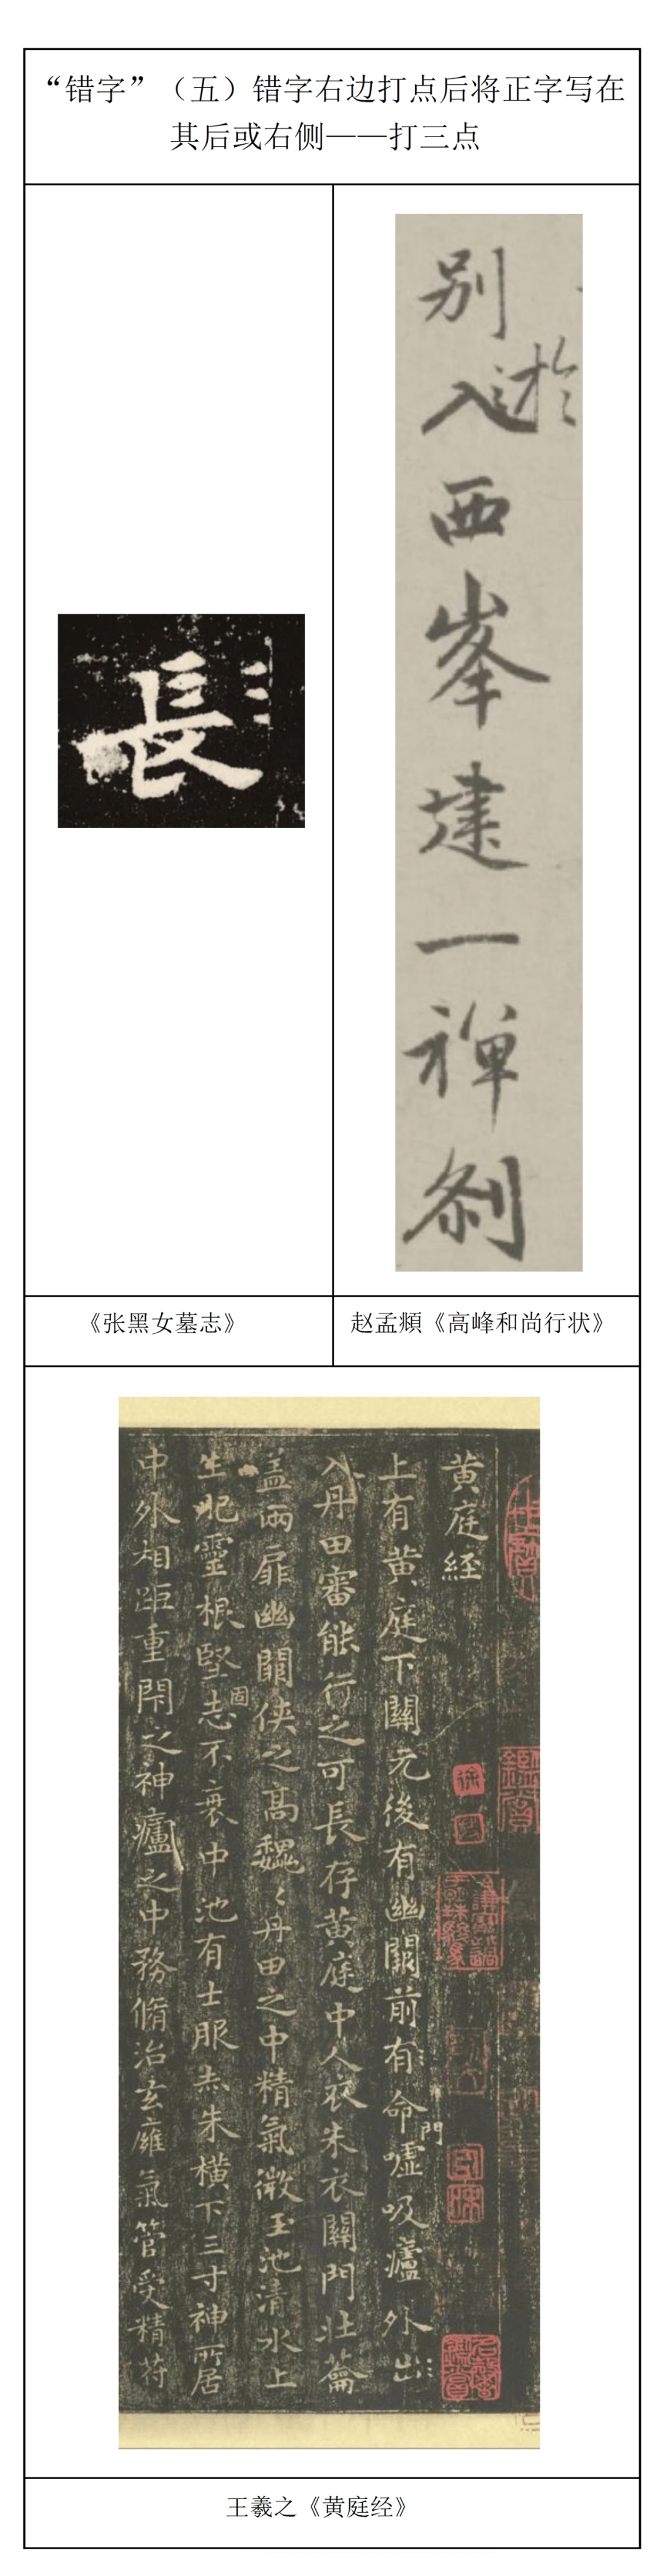 “错字”（五）错字右边打点后将正字写在
其后或右侧——打三点
長
别入西峯建一禅刹
於
《张黑女墓志》
赵孟頫《高峰和尚行状》
黄庭経
上有黄庭下關元後有幽闕前有命嘘吸廬外出
門
入丹田審能行之可長存黄庭中人衣朱衣關門壮蘥
盖兩扉幽關侠之髙魏〻丹田之中精氣微玉池清水上
生肥靈根堅志不衰中池有士服赤朱横下三寸神所居
固
中外相距重閇之神廬之中務脩治玄廱氣管受精苻
王羲之《黄庭经》